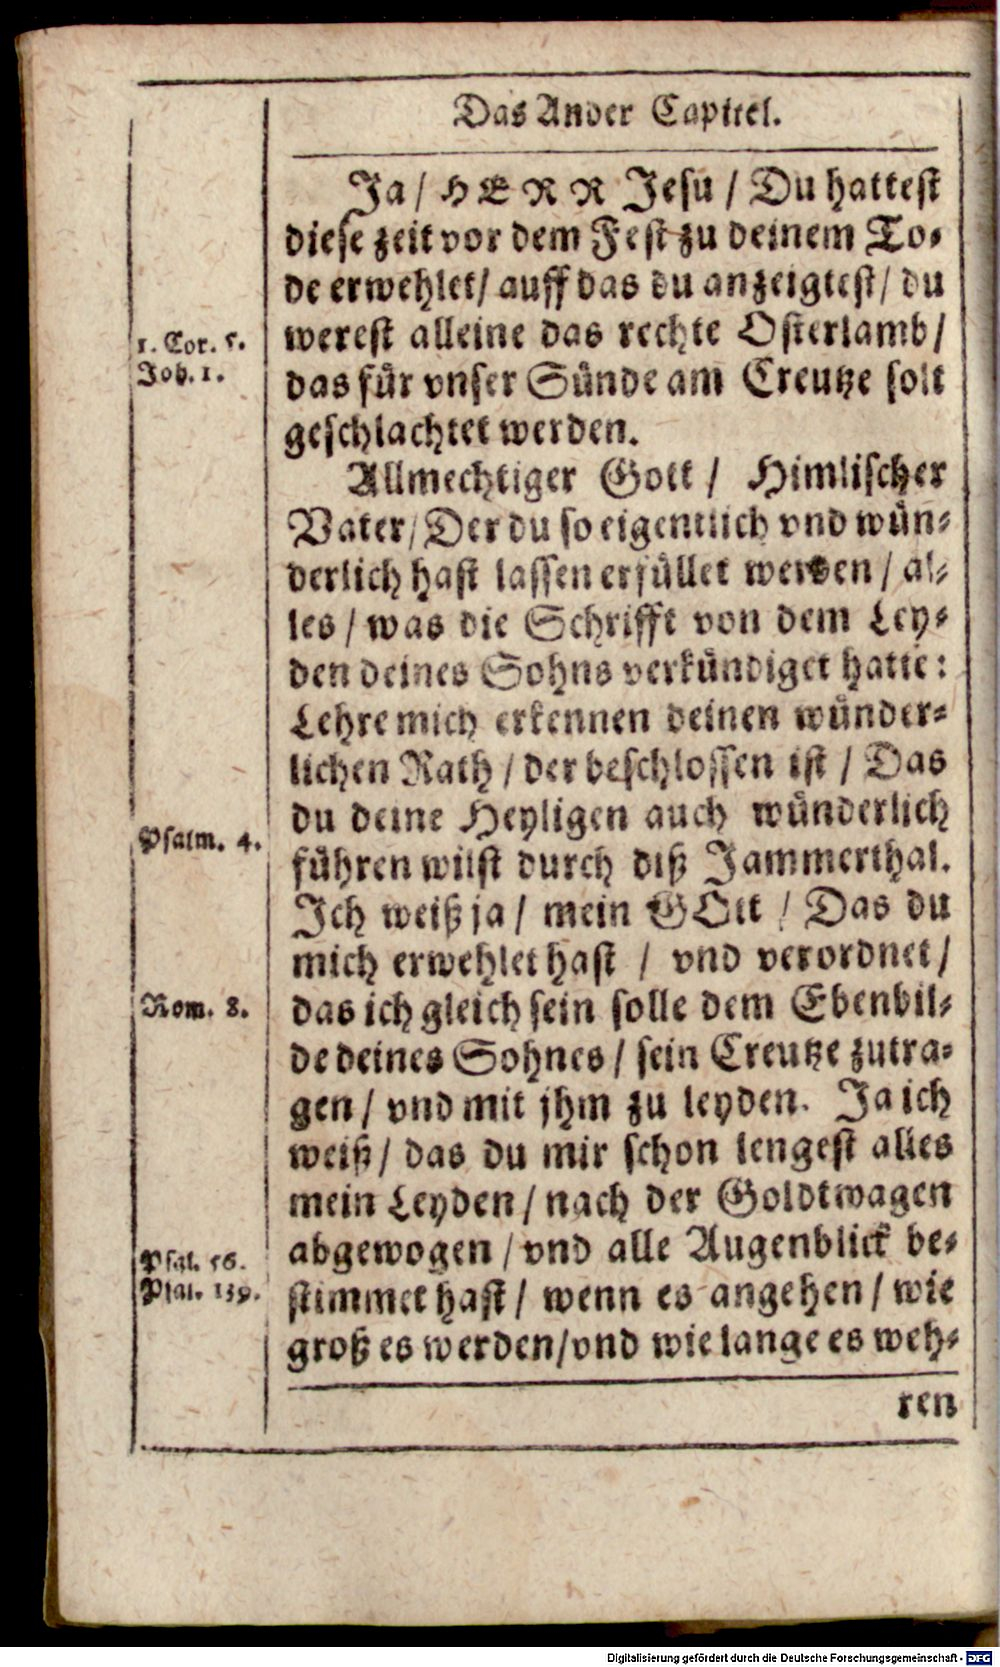 Das Ander Capittel.
Ja / HERR Jesu / Du hattest
diese zeit vor dem Fest zu deinem To-
de erwehlet / auff das du anzeigtest / du
werest alleine das rechte Osterlamb /
1. Cor. 5.
Joh. 1.
das für vnser Sünde am Creutze solt
geschlachtet werden.
Allmechtiger Gott / Himlischer
Vater / Der du so eigentlich vnd wün-
derlich hast lassen erfüllet werden / al-
les / was die Schrifft von dem Ley-
den deines Sohns verkündiget hatte:
Lehre mich erkennen deinen wünder-
lichen Rath / der beschlossen ist / Das
du deine Heyligen auch wünderlich
Psalm. 4.
führen wilst durch diß Jammerthal.
Ich weiß ja / mein GOtt / Das du
mich erwehlet hast / vnd verordnet /
Rom. 8.
das ich gleich sein solle dem Ebenbil-
de deines Sohnes / sein Creutze zutra-
gen / vnd mit jhm zu leyden. Ja ich
weiß / das du mir schon lengest alles
mein Leyden / nach der Goldtwagen
abgewogen / vnd alle Augenblick be-
Psal. 56.
Psal. 139.
stimmet hast / wenn es angehen / wie
groß es werden / vnd wie lange es weh-
ren
Digitalisierung gefördert durch die Deutsche Forschungsgemeinschaft - DFG